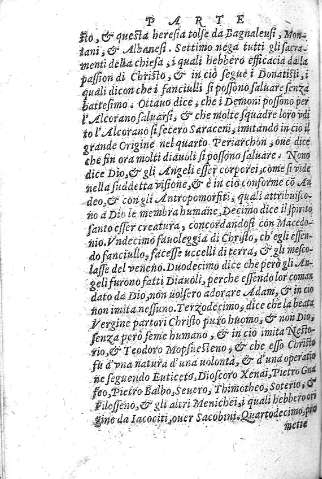 PARTE
sto, & questa heresia tolse da Bagnalensi, Mon-
tani, & Albanesi. Settimo nega tutti gli sacra
menti della chiesa, i quali hebbero efficacia dalla
passion di Christo, & in ciò segue i Donatisti, i
quali dicon che i fanciulli si possono saluare senza
battesimo. Ottauo dice, che i Demoni possono per
l'Alcorano saluarsi, & che molte squadre loro vdi
to l'Alcorano si fecero Saraceni, imitando in ciò il
grande Origine nel quarto Periarchòn, oue dice
che fin ora molti diauoli si possono saluare. Nono
dice Dio, & gli Angeli esser corporei, come si vide
nella suddetta visione, & è in ciò conforme cō Au
deo, & con gli Antropomorfiti, quali attribuisco-
no a Dio le membra humane, Decimo dice il spirito
santo esser creatura, concordandosi con Macedo-
nio. Vndecimo fauoleggia di Christo, ch'egli essen
do fanciullo, facesse uccelli di terra, & gli mesco-
lasse del veneno. Duodecimo dice che però gli An
geli furono fatti Diauoli, perche essendo lor coman
dato da Dio, non uolsero adorare Adam, & in ciò
non imita nessuno. Terzodecimo, dice che la beata
Vergine partorì Christo puro huomo, & non Dio,
senza però seme humano, & in ciò imita Nesto-
rio, & Teodoro Mopsuesteno, & che esso Christo
fù d'vna natura d'una uolontà, & d'una operatio
ne seguendo Euticets, Dioscoro Xenai, Pietro Gna
feo, Pietro Balbo, Seuero, Thimotheo, Soterio, &
Filesseno, & gli altri Menichei, i quali hebbero ori
gine da Iacociti, ouer Sacobini. Quartodecimo, pro
mette